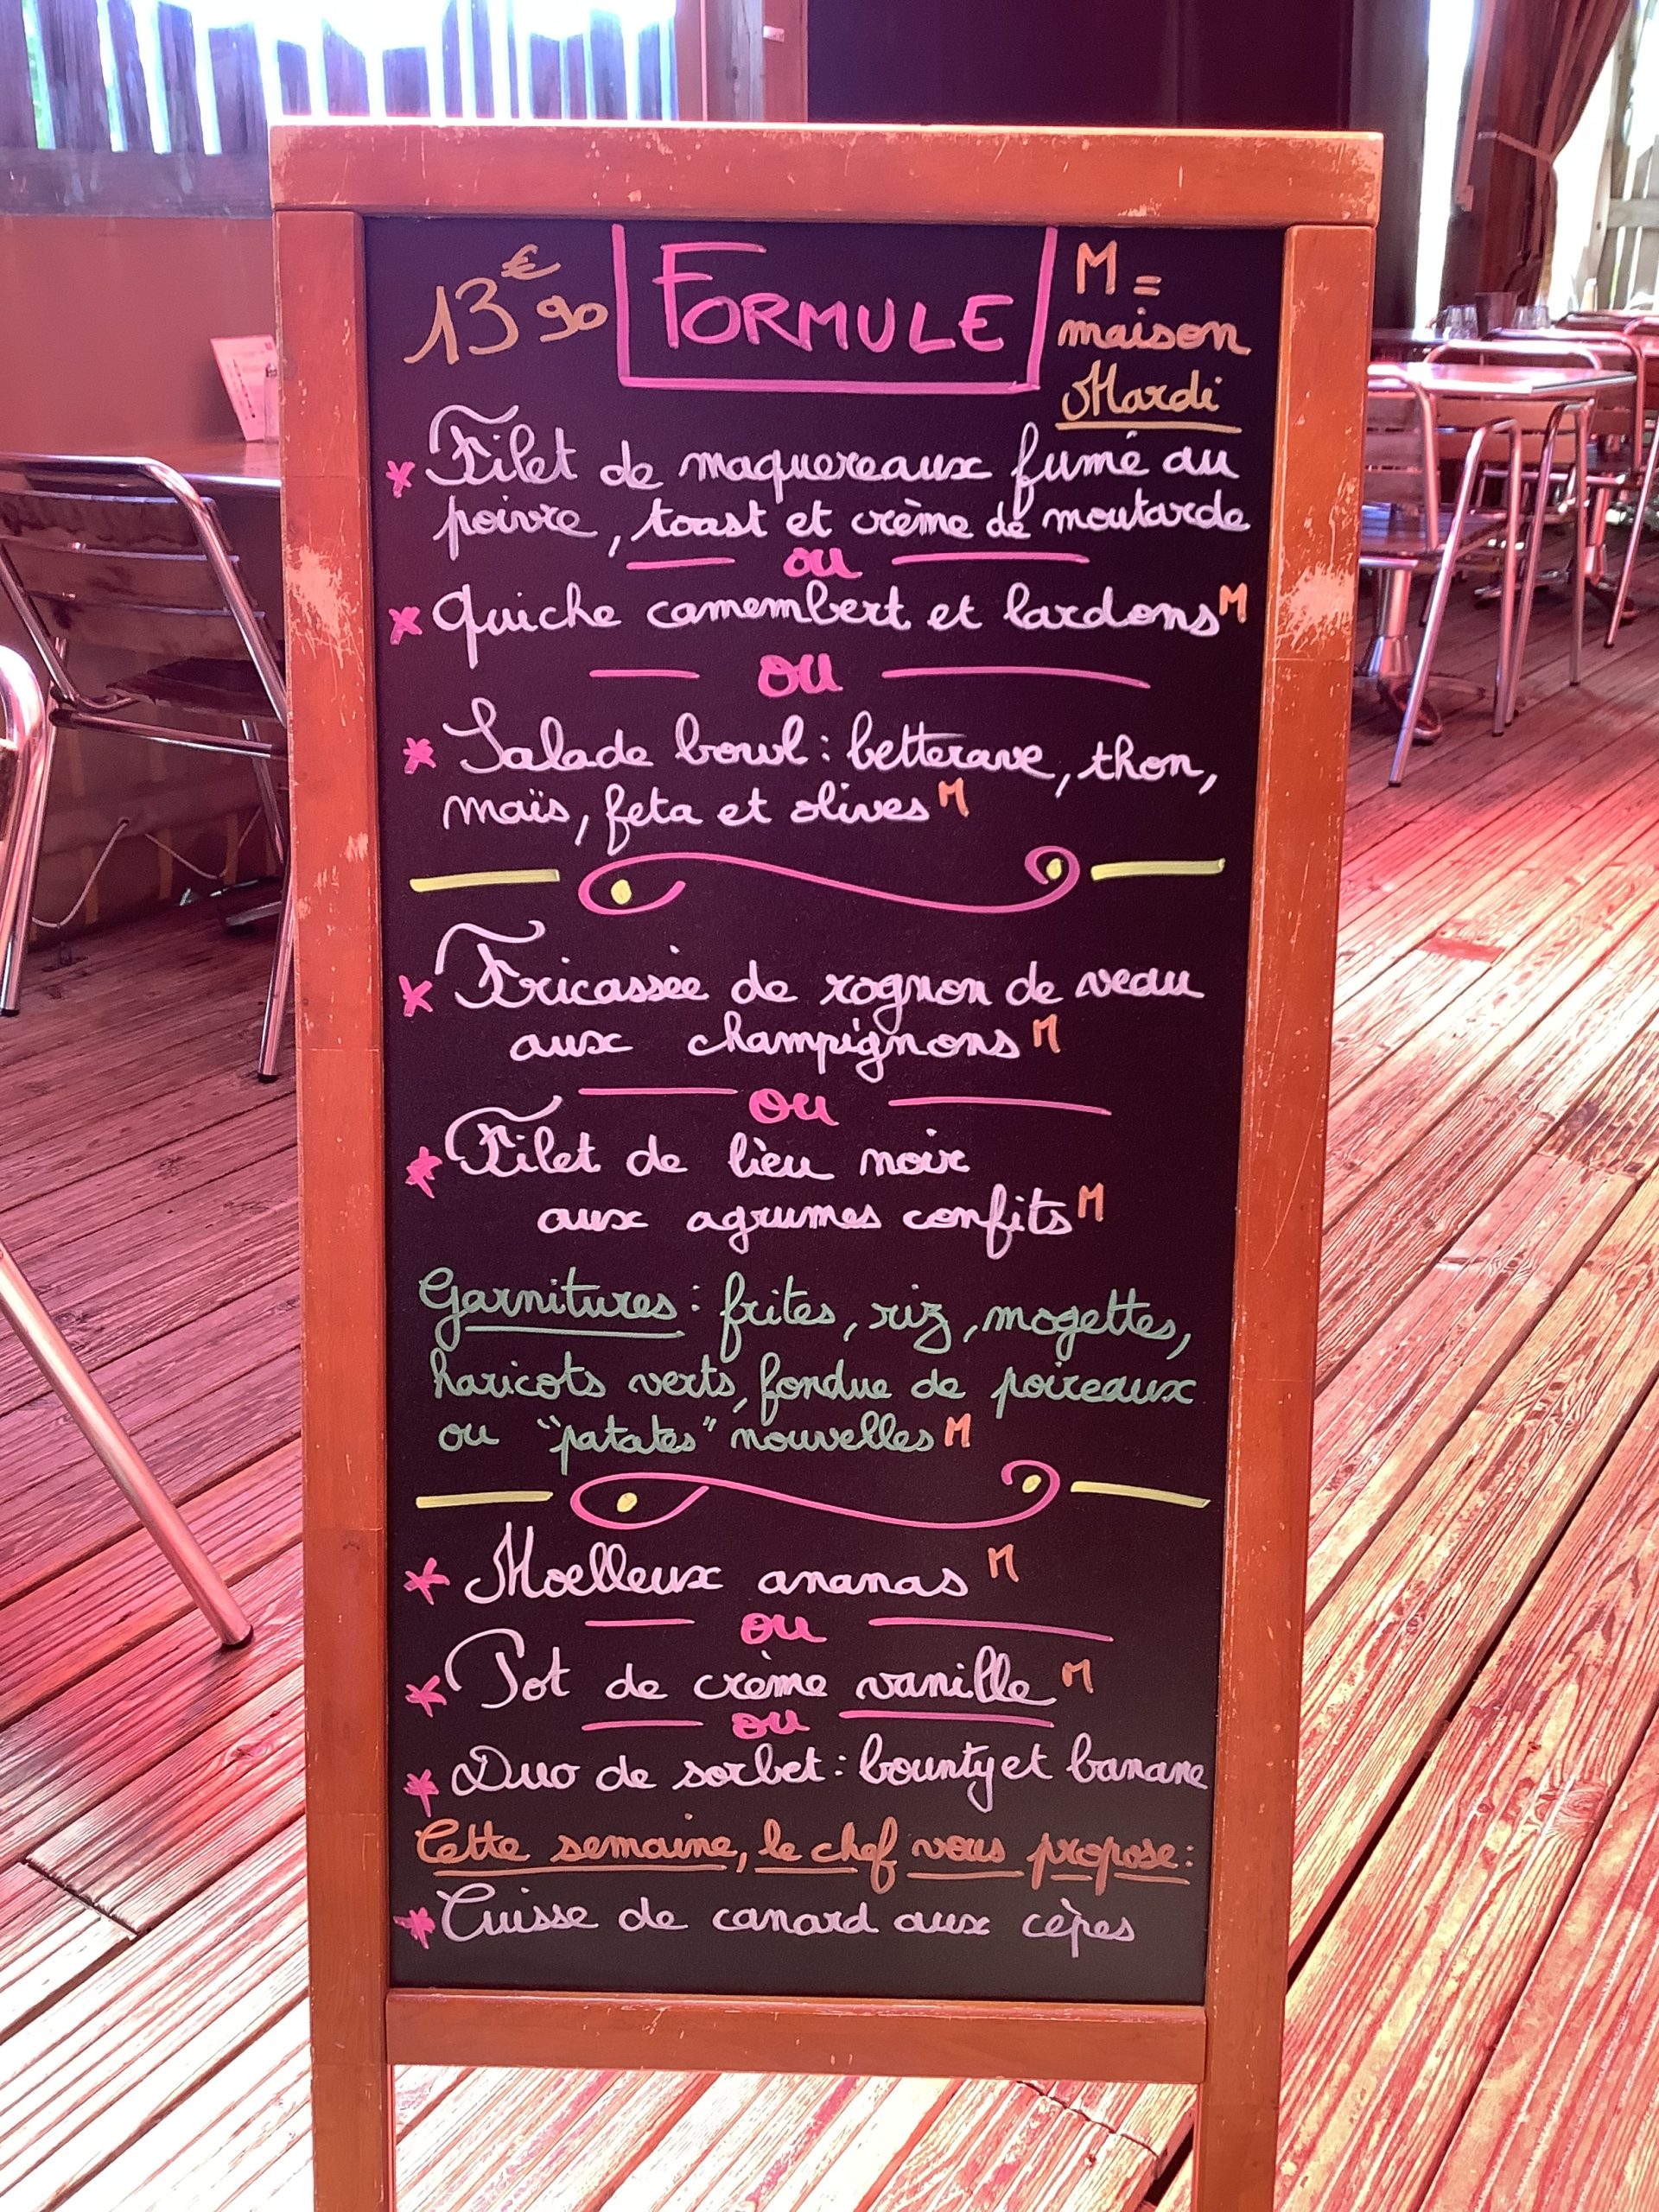 13€90 FORMULE M =
maison
Mardi
* Filet de maquereaux fumé au
poivre, toast et crème de moutarde
ou
* Quiche camembert et lardons M
ou
* Salade bowl : betterave, thon,
maïs, feta et olives M
* Fricassée de rognon de veau
aux champignons M
ou
* Filet de lieu noir
aux agrumes confits M
Garnitures : frites, riz, mogettes,
haricots verts, fondue de poireaux
ou "patates" nouvelles M
* Moelleux ananas M
ou
* Pot de crème vanille M
ou
* Duo de sorbet : bounty et banane
Cette semaine, le chef vous propose :
* Cuisse de canard aux cèpes